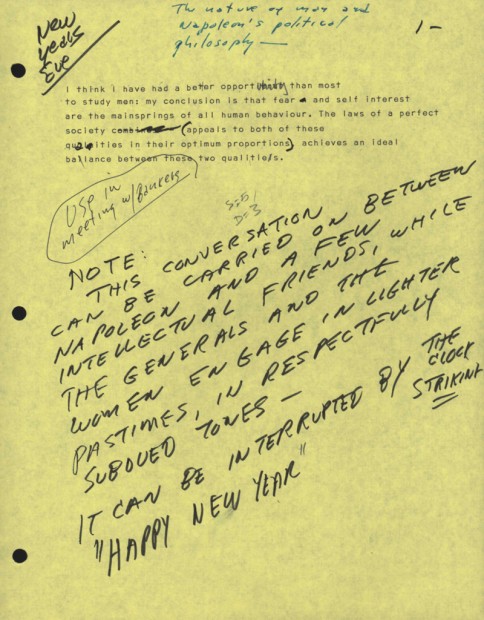 New
Years
Eve
The nature of man and
Napoleon's political
philosophy —
1-
I think i have had a better opportunity than most
to study men: my conclusion is that fear and self interest
are the mainsprings of all human behaviour. The laws of a perfect
society (appeals to both of these
qualities in their optimum proportions) achieves an ideal
balance between these two qualities.
USE in
meeting w/Bankers
S=5/
D=3
NOTE:
THIS CONVERSATION
CAN BE CARRIED ON BETWEEN
NAPOLEON AND A FEW
INTELLECTUAL FRIENDS, WHILE
THE GENERALS AND THE
WOMEN ENGAGE IN LIGHTER
PASTIMES, IN RESPECTFULLY
SUBDUED TONES —
IT CAN BE INTERRUPTED BY THE
CLOCK
STRIKING
"HAPPY NEW YEAR"